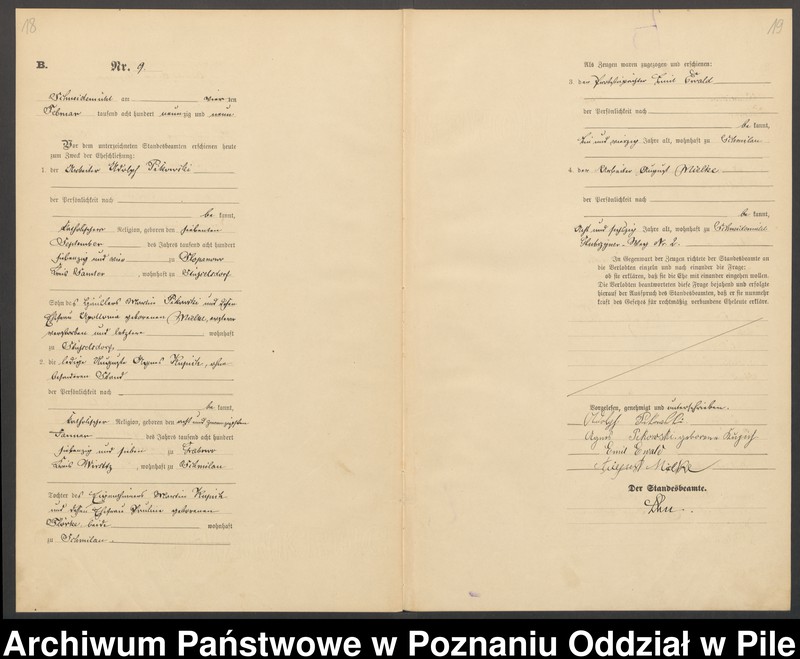 18
19
B.
Nr. 9.
Schneidemühl am vier ten
Februar tausend acht hundert neunzig und neun.
Vor dem unterzeichneten Standesbeamten erschienen heute
zum Zweck der Eheschließung:
1. der Arbeiter Adolph Pikowski
der Persönlichkeit nach
be kannt,
katholischer Religion, geboren den siebenten
September des Jahres tausend acht hundert
siebenzig und vier zu
Kreis , wohnhaft zu Stüsselsdorf.
Sohn des Häuslers Martin Pikowski und dessen
Ehefrau Apollonia geborenen Mielke, ersterer
verstorben und letztere wohnhaft
zu Stüsselsdorf.
2. die ledige Auguste Agnes Kujnik, ohne
besonderen Stand
der Persönlichkeit nach
be kannt,
katholischer Religion, geboren den acht und zwanzigsten
Januar des Jahres tausend acht hundert
siebenzig und sieben zu
Kreis Wirsitz, wohnhaft zu Schmilau
Tochter des Eigenthümers Martin Kujnik
und dessen Ehefrau Pauline geborenen
beide wohnhaft
zu Schmilau.
Als Zeugen waren zugezogen und erschienen:
3. der Emil Ewald
der Persönlichkeit nach
be kannt,
drei und vierzig Jahre alt, wohnhaft zu Schmilau
4. der Arbeiter August Mielke
der Persönlichkeit nach
be kannt,
acht und sechzig Jahre alt, wohnhaft zu Schneidemühl
Weg Nr. 2.
In Gegenwart der Zeugen richtete der Standesbeamte an
die Verlobten einzeln und nach einander die Frage:
ob sie erklären, daß sie die Ehe mit einander eingehen wollen.
Die Verlobten beantworteten diese Frage bejahend und erfolgte
hierauf der Ausspruch des Standesbeamten, daß er sie nunmehr
kraft des Gesetzes für rechtmäßig verbundene Eheleute erkläre.
Vorgelesen, genehmigt und unterschrieben.
Adolf Pikowski
Agnes Pikowska geborene Kujnik
Emil Ewald
August Mielke
Der Standesbeamte.
Archiwum Państwowe w Poznaniu Oddział w Pile